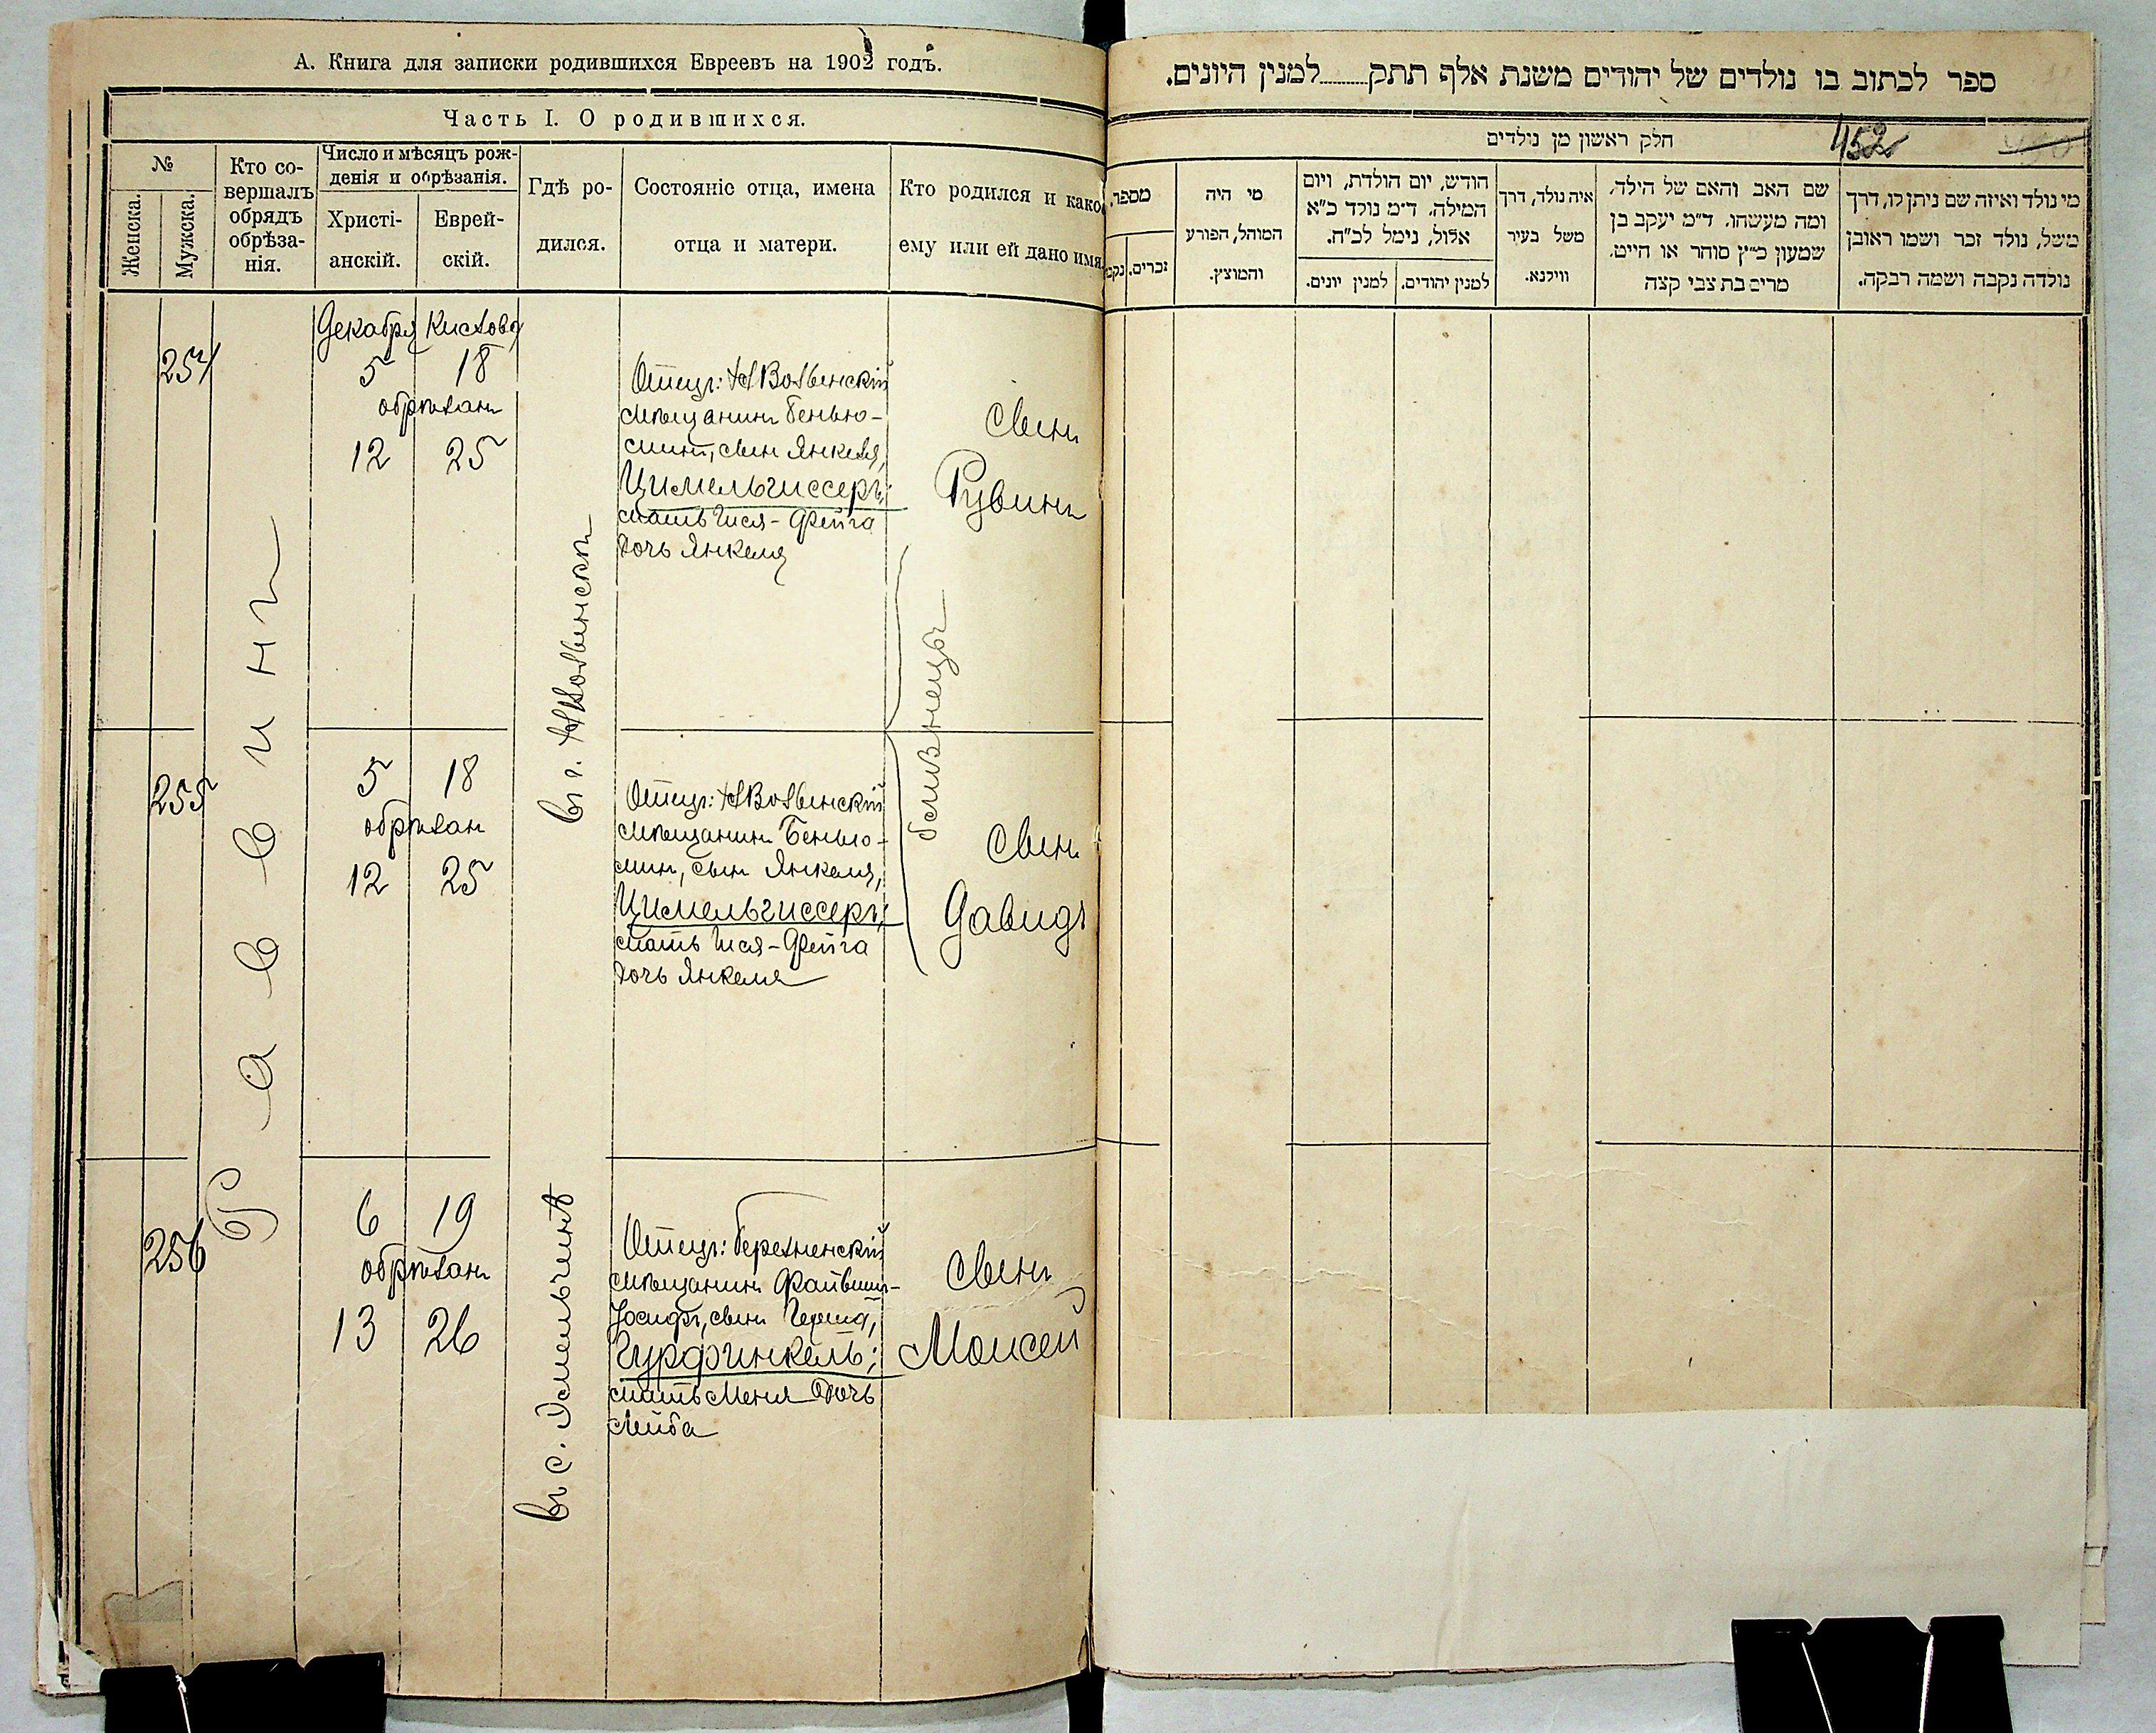 А. Книга для записки родившихся Евреевъ на 1902 годъ.
Часть I. О родившихся.
№
Женска.
Мужска.
Кто со-
вершалъ
обрядъ
обрѣза-
нія.
Число и мѣсяцъ рож-
денія и обрѣзанія.
Христі-
анскій.
Еврей-
скій.
Гдѣ ро-
дился.
Состояніе отца, имена
отца и матери.
Кто родился и како
ему или ей дано имя
Раввинъ
254
Декабря Кислова
5 18
обрѣзанъ
12 25
въ г.
Отецъ:
мѣщанинъ Бенью-
минъ, сынъ Янкеля,
Цимельгиссеръ;
мать Гися-Фейга
дочь Янкеля
сынъ
Рувинъ
близнецы
255
5 18
обрѣзан
12 25
Отецъ:
мѣщанинъ Бенью-
минъ, сынъ Янкеля,
Цимельгиссеръ;
мать Гися-Фейга
дочь Янкеля
сынъ
Давидъ
256
6 19
обрѣзанъ
13 26
въ с. Эмельчинѣ
Отецъ: Березненскій
мѣщанинъ Файвишъ-
Іосифъ, сынъ
Гурфинкель;
мать Меня дочь
Лейба
сынъ
Моисей
ספר לכתוב בו נולדים של יהודים משנת אלף תתק למנין היונים.
חלק ראשון מן נולדים
452
מספר.
זכרים.
נקב
מי היה
המוהל, הפורע
והמוצץ.
חודש, יום הולדת, ויום
המילה. ד״מ נולד כ״א
אלול, נימל לכ״ח.
למנין יהודים.
למנין יונים.
איה נולד, דרך
משל בעיר
ווילנא.
שם האב והאם של הילד,
ומה מעשהו. ד״מ יעקב בן
שמעון כ״ץ סוהר או חייט.
מרים בת צבי קצה
מי נולד ואיזה שם ניתן לו, דרך
משל, נולד זכר ושמו ראובן
נולדה נקבה ושמה רבקה.